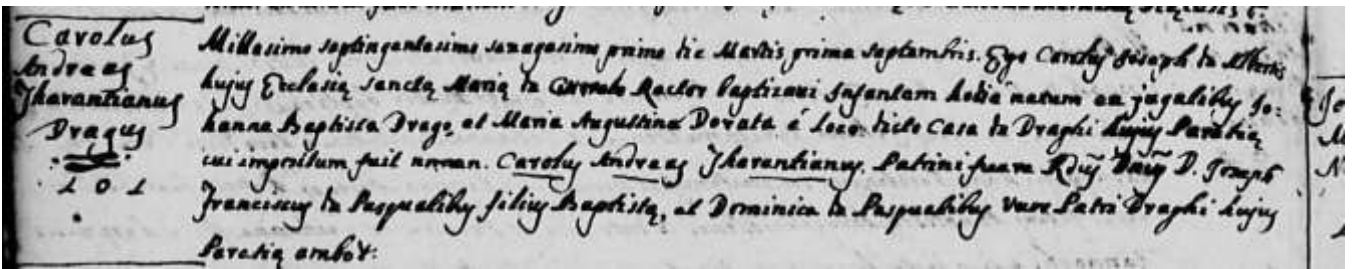 Carolus
Andreas
Jharantianus
Dragus
101
Millesimo septingentesimo sexagesimo primo die Martis prima septembris. Ego Carolus Joseph de Albertis
hujus Ecclesiæ Sanctæ Mariæ de Rector baptizavi Infantem hodie natum ex jugalibus Jo:
hanne Baptista Drago, et Maria Augustina Dorata á loco dicto Casa de Draghi hujus Parœtiæ
cui impositum fuit nomen. Carolus Andreas Jharantianus. Patrini fuere Rdus D. Joseph
Franciscus de Pasqualibus filius Baptistæ, et Dominica de Pasqualibus Petri Draghi hujus
Parœtiæ